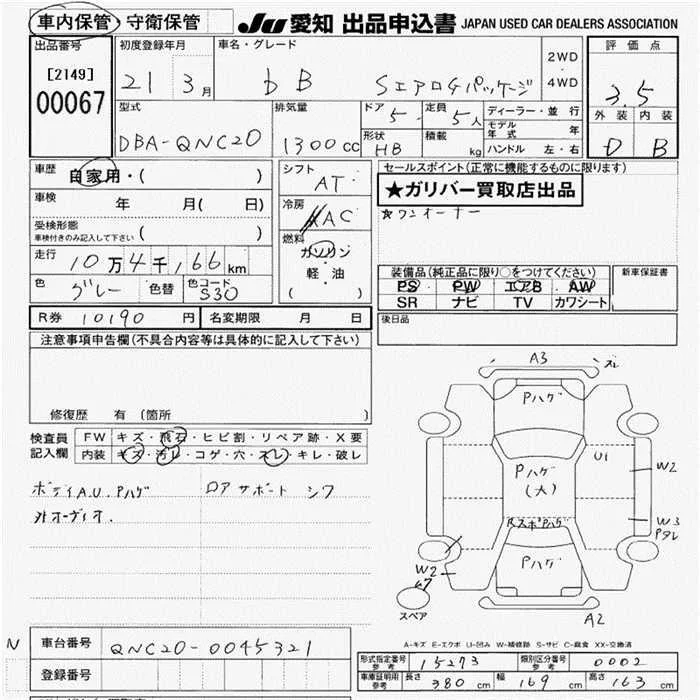 車内保管・守衛保管 JU 愛知 出品申込書 JAPAN USED CAR DEALERS ASSOCIATION
出品番号 [2149] 00067
初度登録年月 21 3月
車名・グレード bB SエアロGパッケージ 2WD・4WD
評価点 3.5
外装 内装
D B
型式 DBA-QNC20
排気量 1300cc
ドア 5 定員 5人
形状 HB 積載 kg
ディーラー・並行
モデル年式 年
ハンドル 左・右
車歴 自家用・( )
車検 年 月( 日)
受検形態
車検付きのみ記入して下さい ( )
走行 10万4千166km
色 グレー 色替 色コード S30
シフト AT
冷房 AC
燃料 ガソリン
軽・油
( )
セールスポイント(正常に機能するものに限ります)
★ガリバー買取店出品
☆ワンオーナー
装備品(純正品に限り○をつけてください) 新車保証書
PS PW エアB AW
SR ナビ TV カワシート
後日品
R券 10190円 名変期限 月 日
注意事項申告欄(不具合内容等は具体的に記入して下さい)
修復歴 有 (箇所 )
検査員記入欄 FW キズ・飛石・ヒビ割・リペア跡・X要
内装 キズ・汚レ・コゲ・穴・スレ・キレ・破レ
ボディA.U.Pハゲ ロアサポート シワ
外オーディオ.
A3 ズレ
Pハゲ
U1
W2
Pハゲ
(大)
W3
Pタレ
RスポPハゲ
Pハゲ
W2
67
スペア
A2
A-キズ E-エクボ U-凹み W-補修跡 S-サビ C-腐食 XX-交換済
N 車台番号 QNC20-0045321
登録番号
形式指定番号参考 15273 類別区分番号参考 0002
車庫証明用参考 長さ 380cm 幅 169cm 高さ 163cm